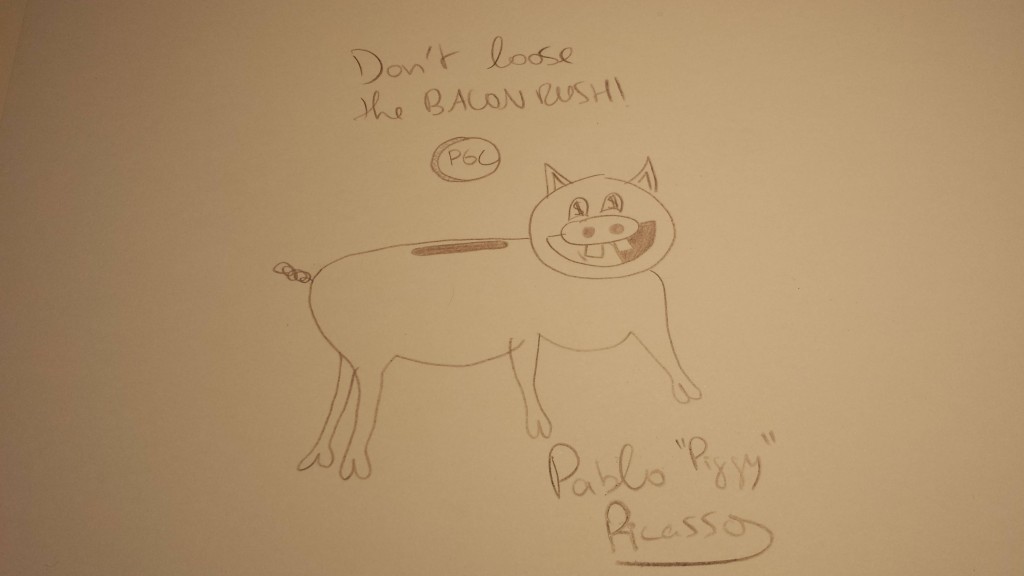 Don't loose
the BACON RUSH!
PGC
Pablo "Piggy"
Picasso